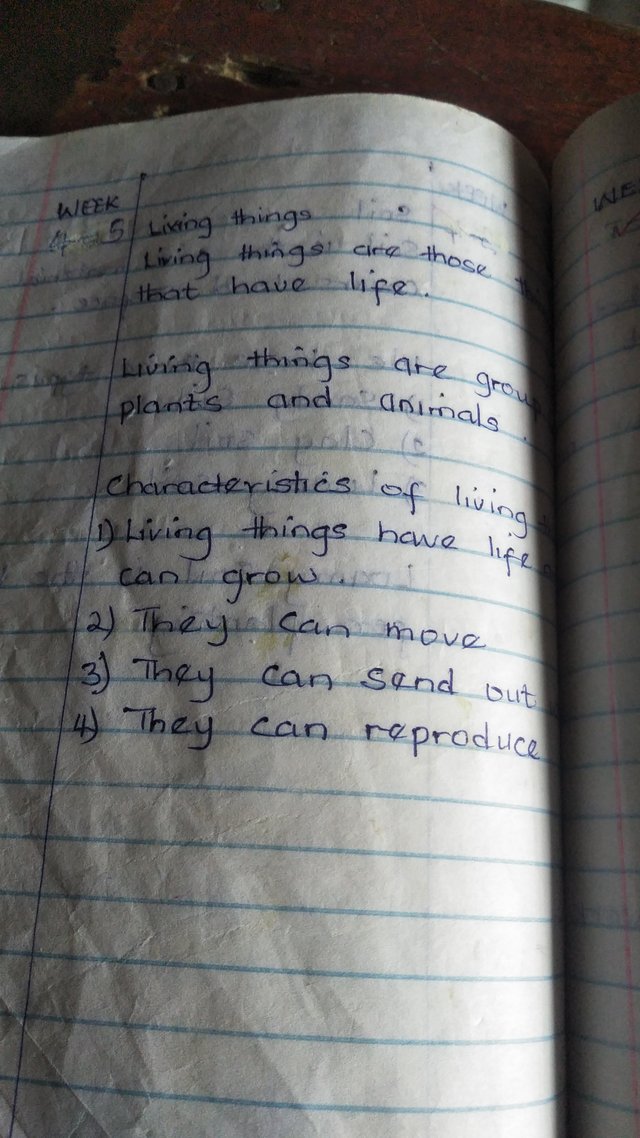 WEEK
4 - 5 Living things
Living things are those
that have life.
Living things are
plants and animals.
Characteristics of living
1) Living things have life
can grow.
2) They can move
3) They can send out
4) They can reproduce
WE